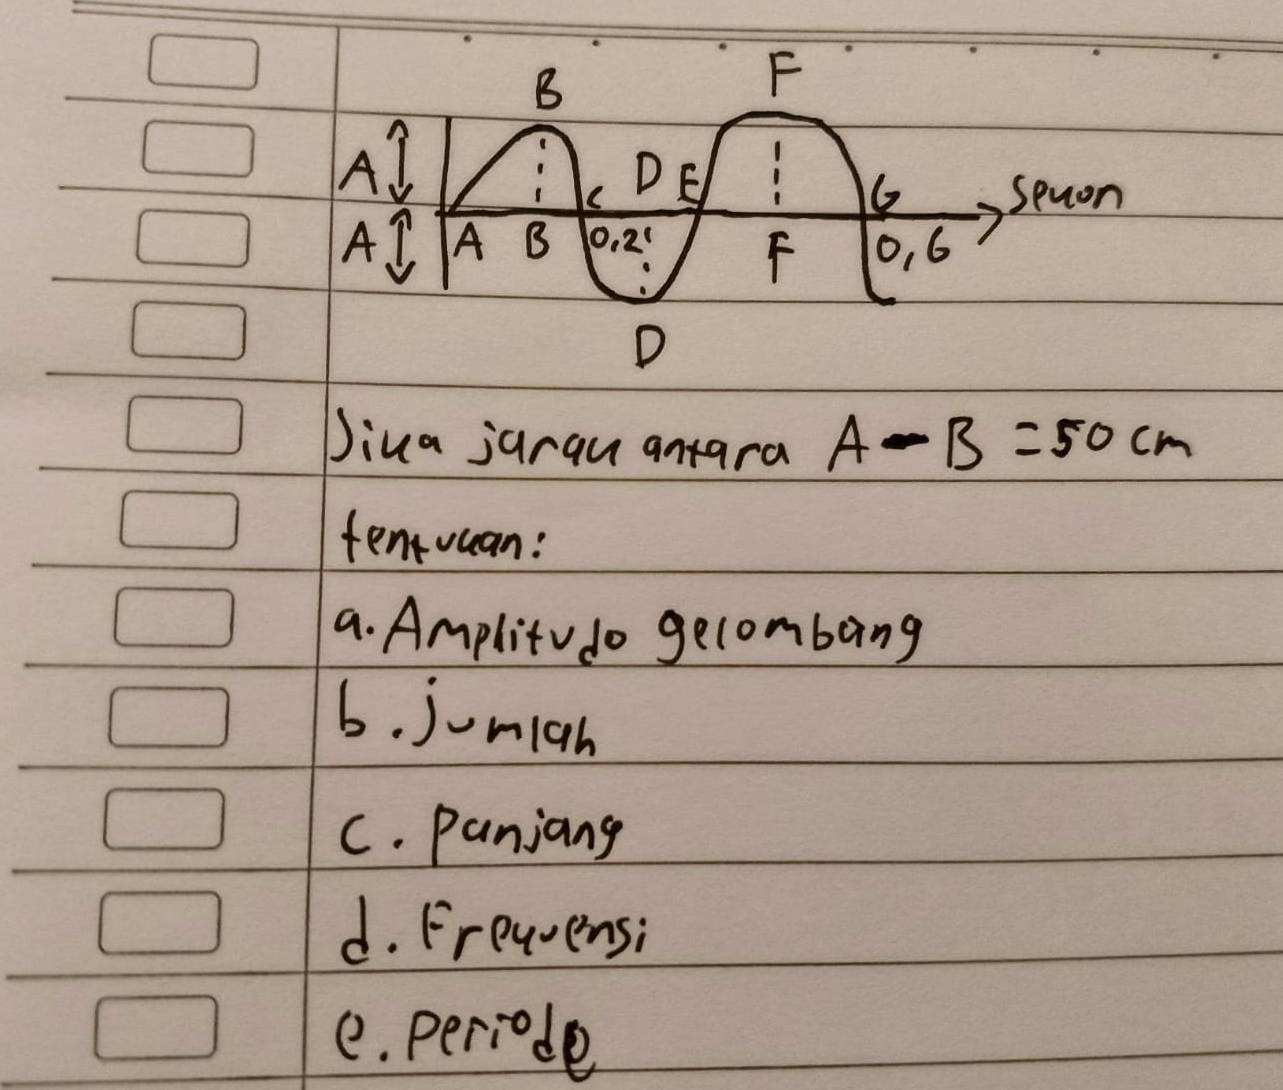 B F
A D E C G sekon
A A B 0,2 F 0,6
D
Jika jarak antara A - B = 50 cm
tentukan:
a. Amplitudo gelombang
b. jumlah
c. panjang
d. Frekuensi
e. periode